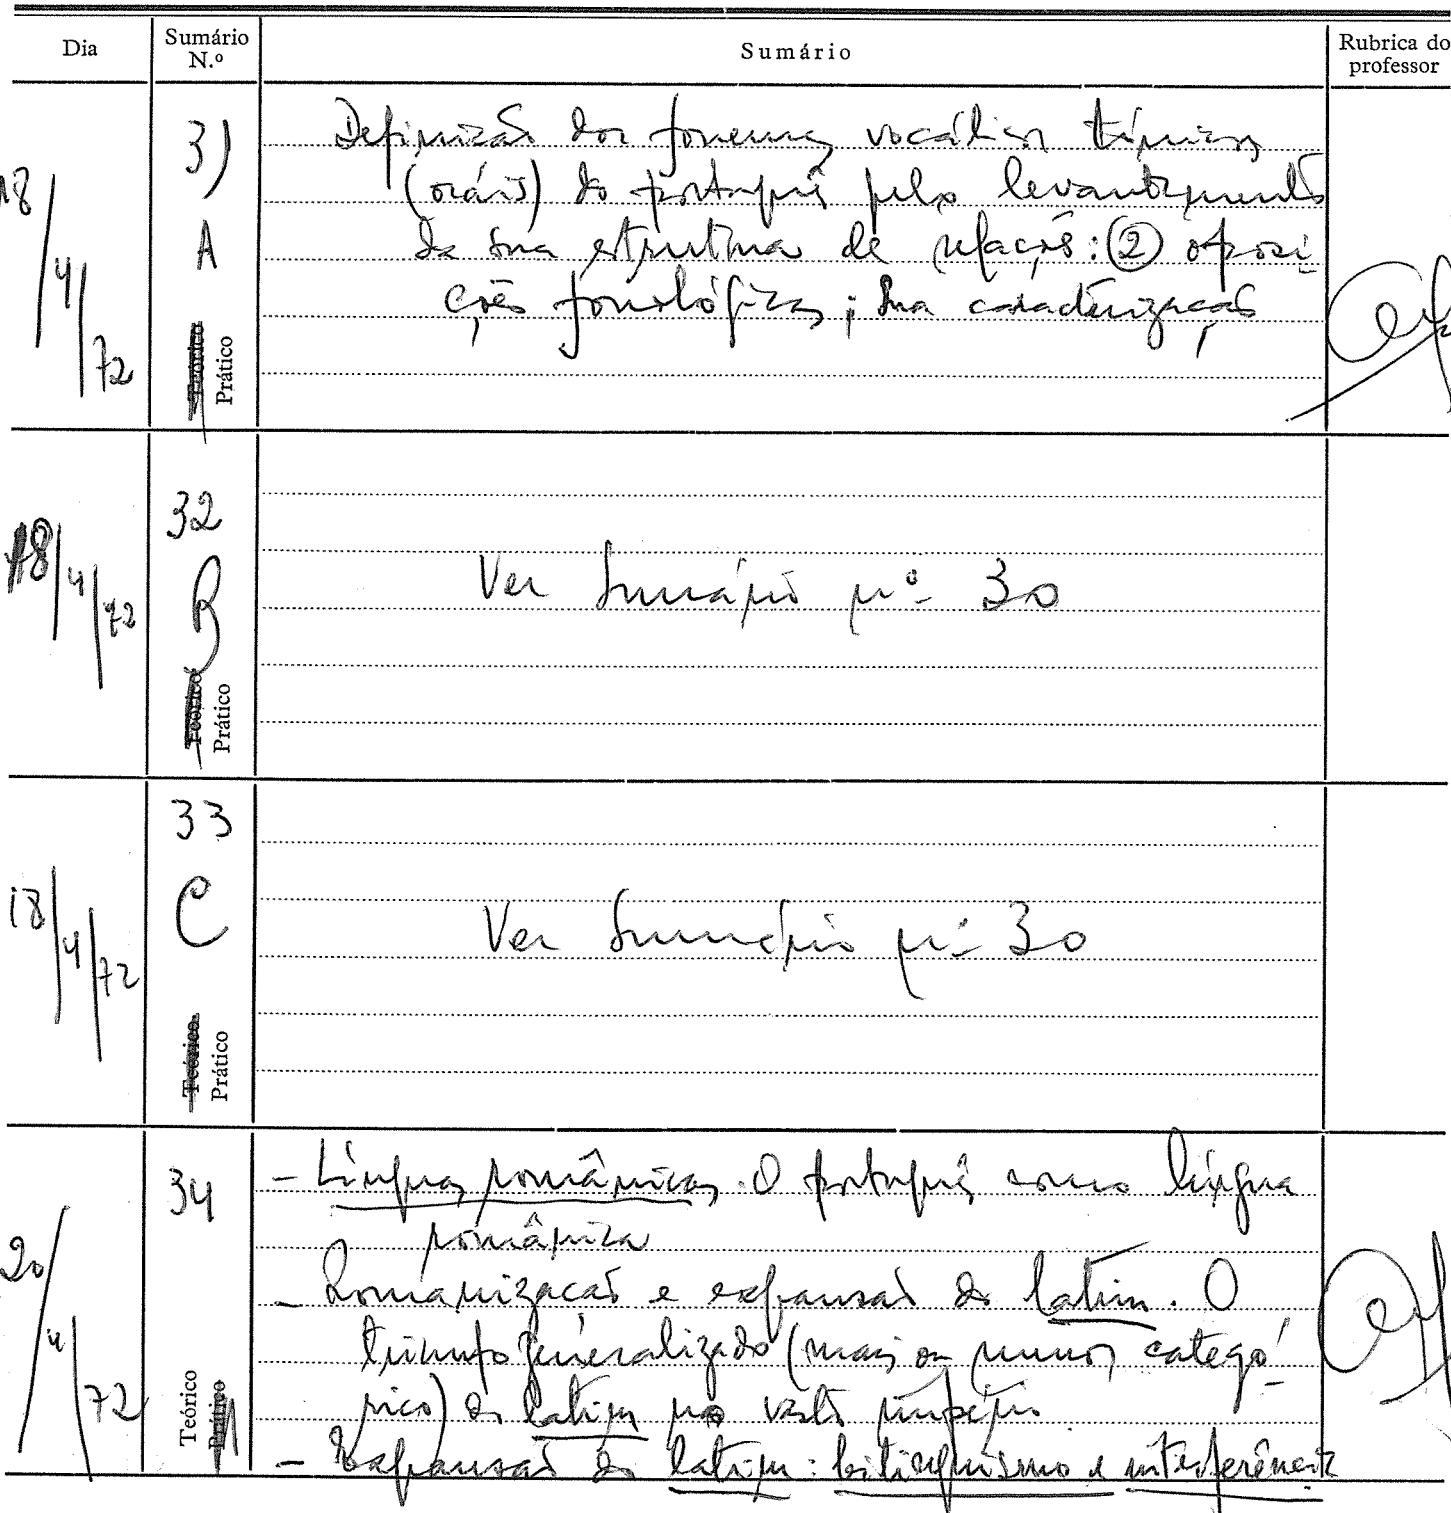 Dia
Sumário N.º
Sumário
Rubrica do professor
18/4/72
31
A
Teórico
Prático
Definição dos fonemas vocálicos tónicos
(orais) do português pelo levantamento
da sua estrutura de relações: (2) oposi-
ções fonológicas; sua caracterização
18/4/72
32
B
Teórico
Prático
Ver Sumário nº 30
18/4/72
33
C
Teórico
Prático
Ver Sumário nº 30
20/4/72
34
Teórico
Prático
- Línguas românicas. O português como língua
românica
- Romanização e expansão do latim. O
triunfo generalizado (mais ou menos categó-
rico) do latim no vasto império
- Expansão do latim: bilinguismo e interferência